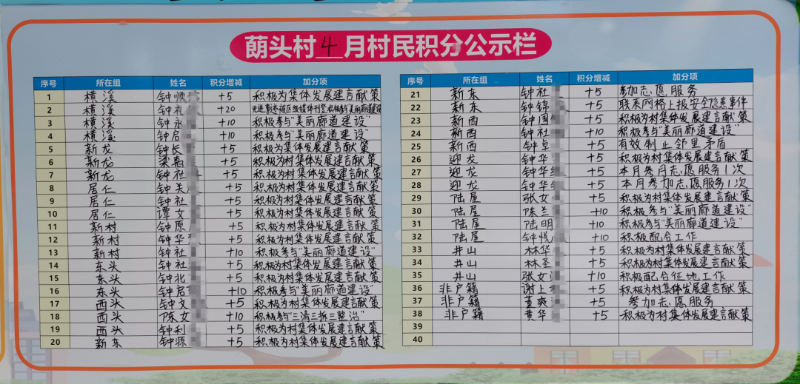 萌头村4月村民积分公示栏
序号 所在组 姓名 积分增减 加分项
1 横溪 钟 +5 积极为集体发展建言献策
2 横溪 钟 +20
3 横溪 钟永 +10 积极参与"美丽廊道建设"
4 横溪 钟启 +10 积极参与"美丽廊道建设"
5 新龙 钟长 +5 积极为集体发展建言献策
6 新龙 梁 +5 积极为村集体发展建言献策
7 新龙 钟社 +5 积极为村集体发展建言献策
8 居仁 钟美 +5 积极为村集体发展建言献策
9 居仁 钟社 +5 积极为村集体发展建言献策
10 居仁 谭文 +5 积极为村集体发展建言献策
11 新村 钟原 +5 积极为村集体发展建言献策
12 新村 钟华 +5 积极为村集体发展建言献策
13 新村 钟社 +10 积极参与"美丽廊道建设"
14 东头 钟社 +5 积极为村集体发展建言献策
15 东头 钟北 +5 积极为村集体发展建言献策
16 东头 钟 +10 积极参与"美丽廊道建设"
17 西头 钟文 +5 积极为村集体发展建言献策
18 西头 陈女 +10 积极参与"三清三拆三整治"
19 西头 钟利 +5 积极为村集体发展建言献策
20 新东 钟源 +5 积极为村集体发展建言献策
序号 所在组 姓名 积分增减 加分项
21 新东 钟社 +5 参加志愿服务
22 新东 钟锦 +5 联系网格上报安全隐患事件
23 新西 钟国 +5 积极为村集体发展建言献策
24 新西 钟社 +10 积极参与"美丽廊道建设"
25 新西 钟卓 +5 有效制止邻里矛盾
26 迎龙 钟华 +5 积极为村集体发展建言献策
27 迎龙 钟华 +5 本月参月志愿服务1次
28 迎龙 钟华 +5 本月参加志愿服务1次
29 陆屋 张女 +5 积极为村集体发展建言献策
30 陆屋 陈兰 +10 积极参与"美丽廊道建设"
31 陆屋 陆明 +10 积极参与"美丽廊道建设"
32 陆屋 钟 +5 积极配合工作
33 井山 林华 +5 积极为村集体发展建言献策
34 井山 林圣 +5 积极为村集体发展建言献策
35 井山 张女 +10 积极配合征地工作
36 非户籍 谢上 +5 积极为村集体发展建言献策
37 非户籍 董 +5 参加志愿服务
38 非户籍 黄华 +5 积极为村集体发展建言献策
39
40